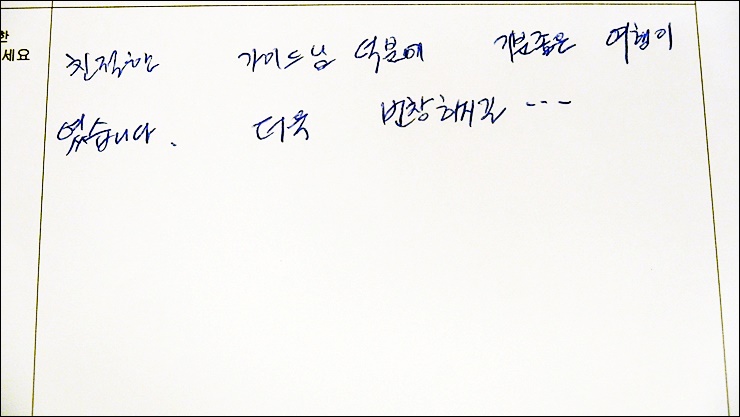 한
세요
친절한 가이드님 덕분에 기분좋은 여행이
였습니다. 더욱 번창하시길 ---